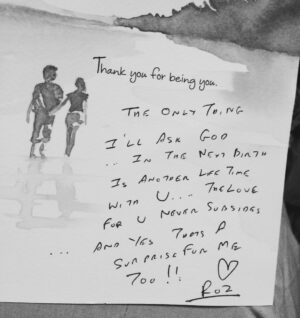 Thank you for being you.
THE ONLY THING
I'LL ASK GOD
.. IN THE NEXT BIRTH
IS ANOTHER LIFE TIME
WITH U... THE LOVE
FOR U NEVER SUBSIDES
... AND YES THATS A
SURPRISE FOR ME
TOO !!
ROZ